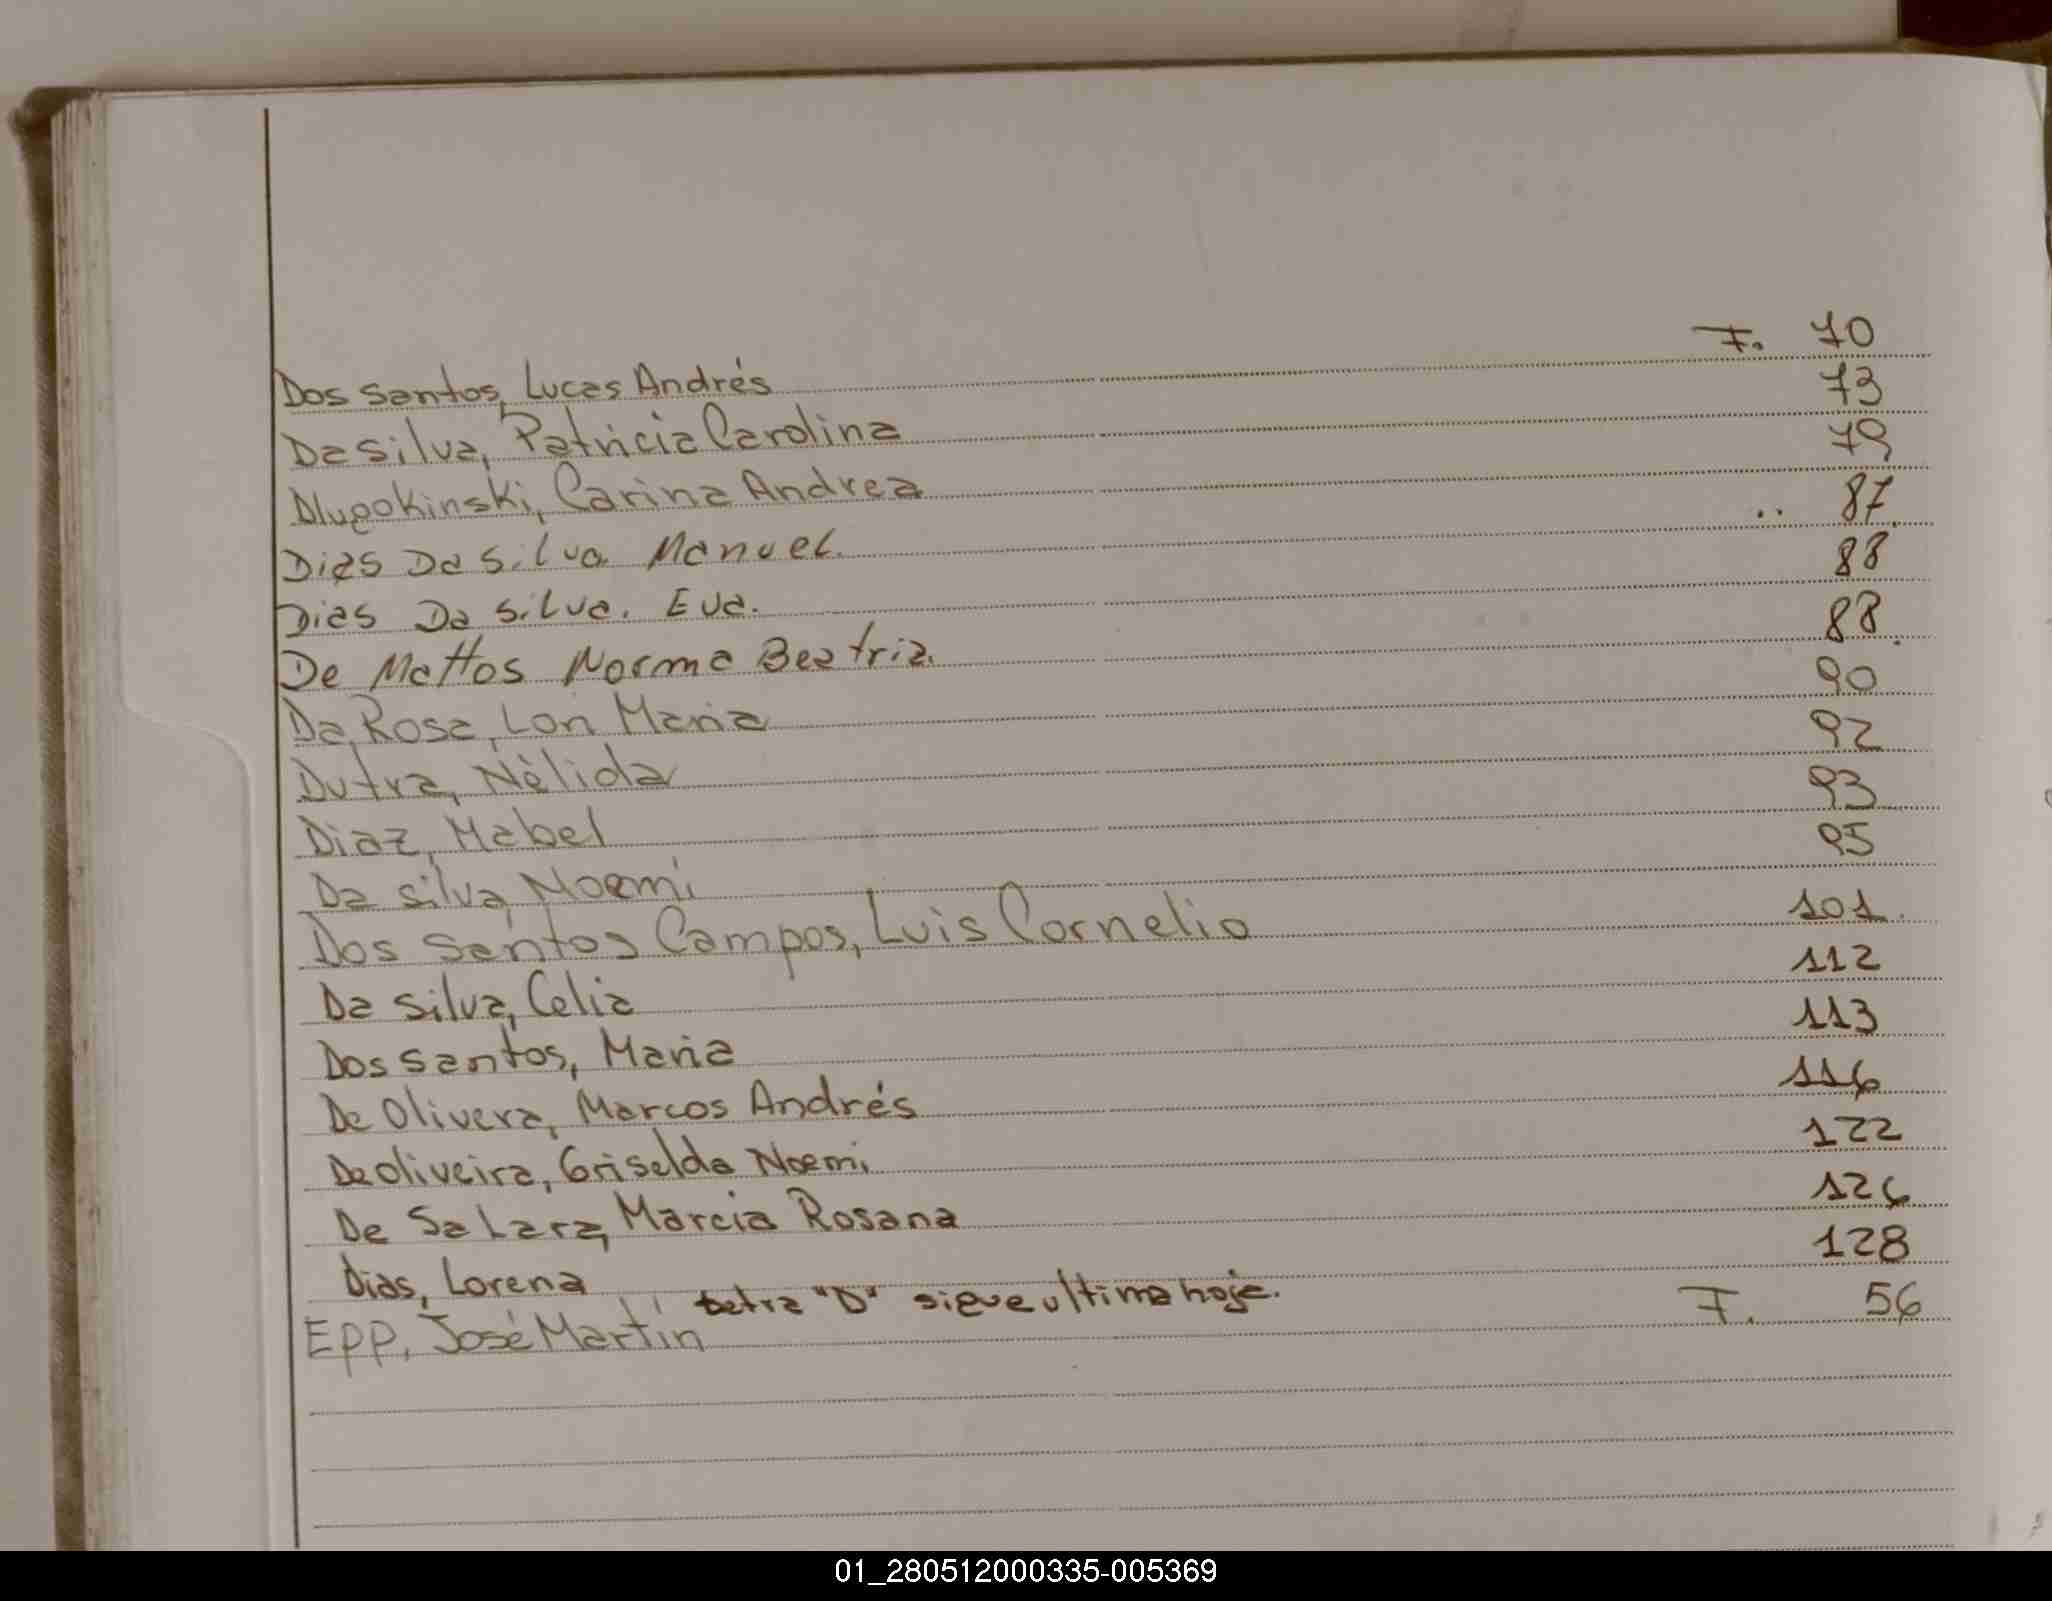 Dos Santos, Lucas Andrés F. 70
Da Silva, Patricia Carolina 73
Dlugokinski, Carina Andrea 79
Dias Da Silva Manuel. .. 87.
Dias Da Silva. Eva. 88
De Mattos Norma Beatriz. 88.
Da Rosa, Lori Maria 90
Dutra, Nélida 92
Diaz, Mabel 93
Da Silva, Noemí 95
Dos Santos Campos, Luis Cornelio 101.
Da Silva, Celia 112
Dos Santos, Maria 113
De Olivera, Marcos Andrés 116
De Oliveira, Griselda Noemi 122
De Sa Lara, Marcia Rosana 126
Dias, Lorena 128
Letra "D" sigue ultima hoja.
Epp, José Martín F. 56
01_280512000335-005369